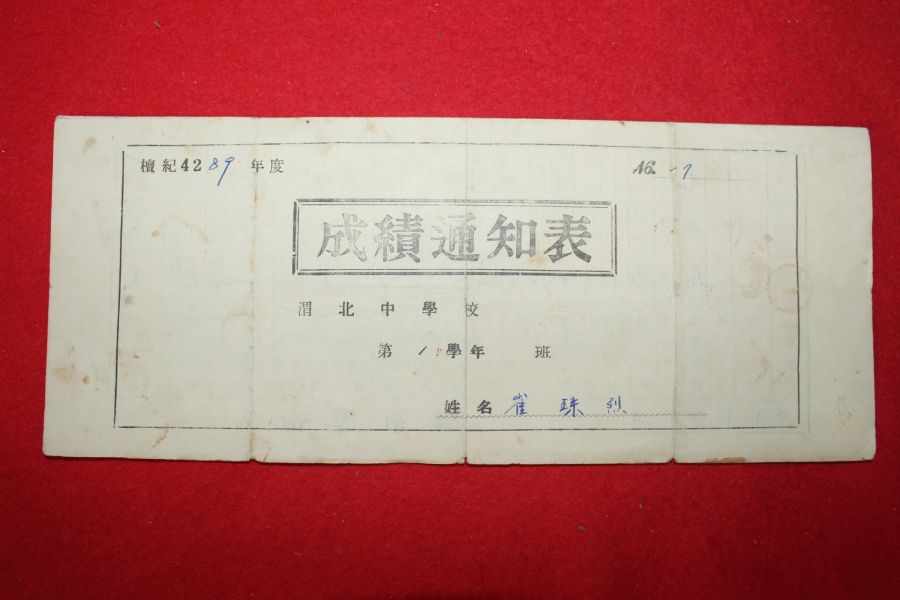 檀紀4289年度
№ 7
成績通知表
渭北中學校
第1學年 班
姓名 崔珠烈